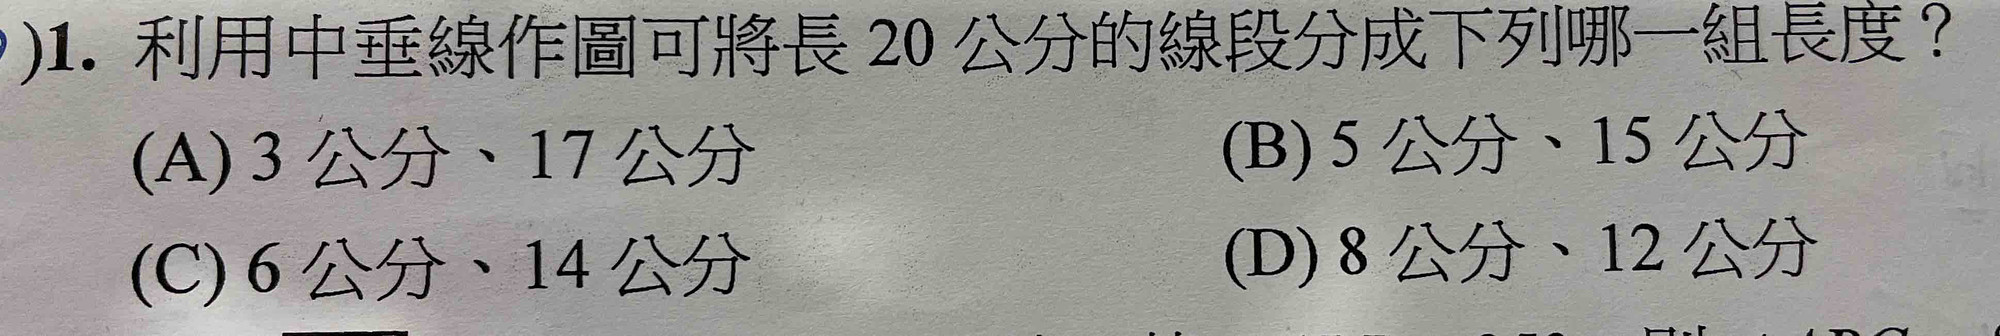 )1. 利用中垂線作圖可將長 20 公分的線段分成下列哪一組長度？
(A) 3 公分、17 公分
(B) 5 公分、15 公分
(C) 6 公分、14 公分
(D) 8 公分、12 公分